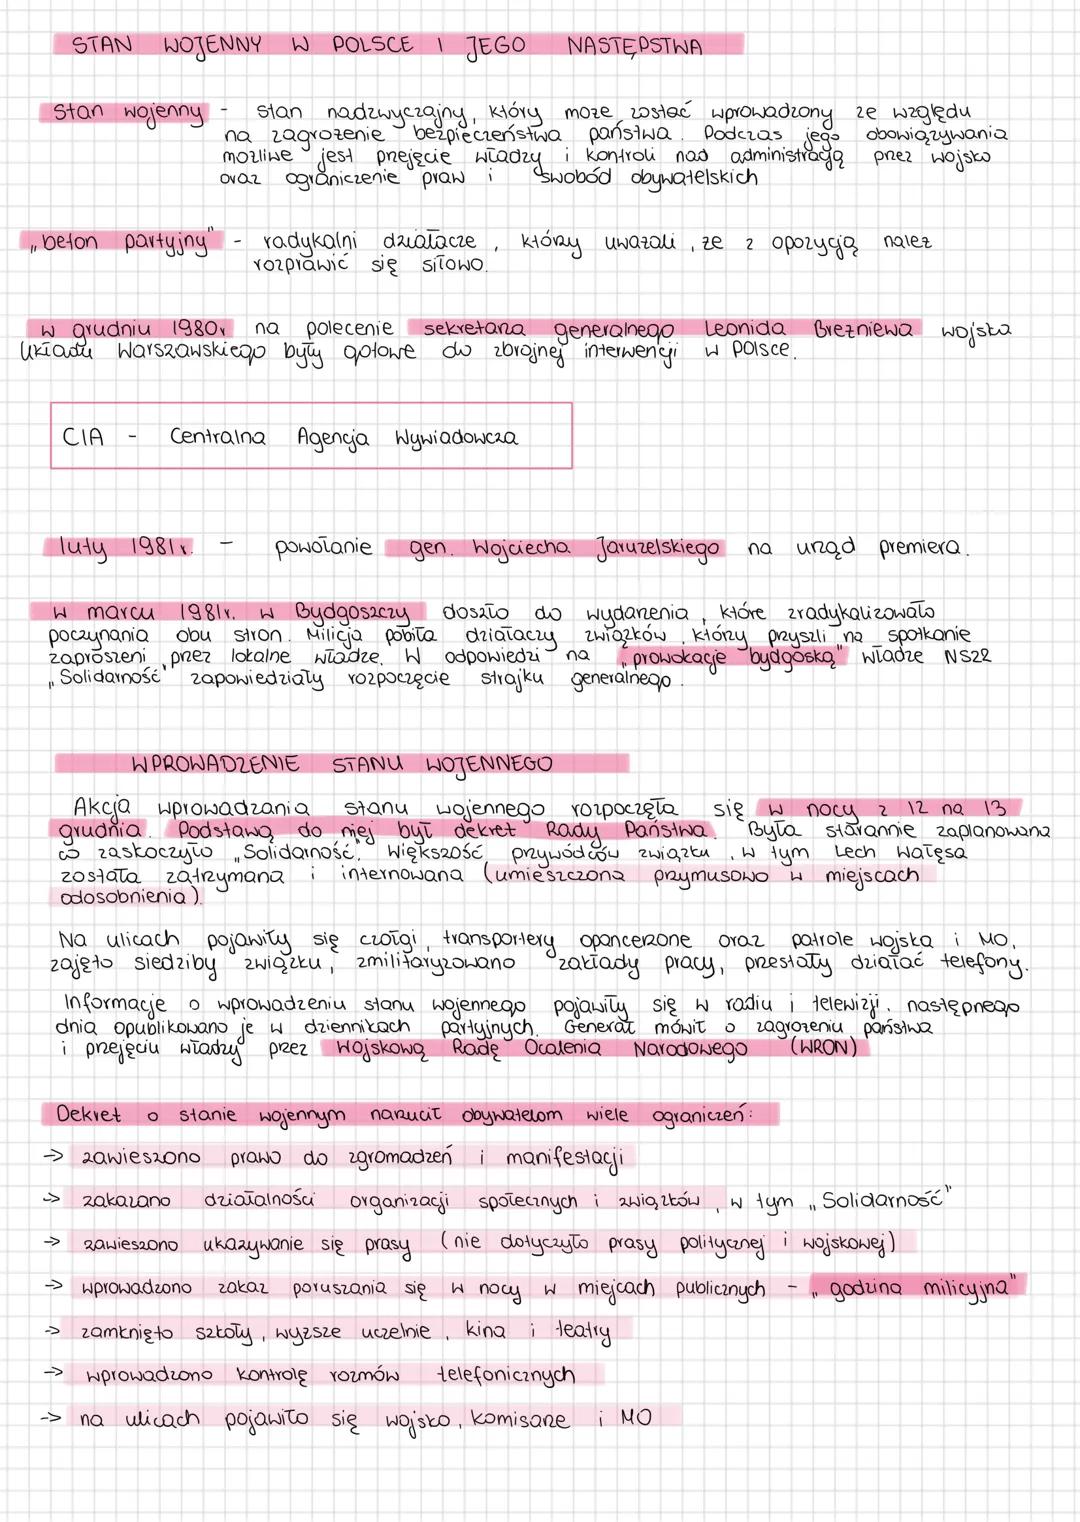 STAN WOJENNY W POLSCE I JEGO NASTĘPSTWA
Stan wojenny - stan nadzwyczajny, który może zostać wprowadzony ze względu
na zagrożenie bezpieczeństwa państwa. Podczas jego obowiązywania
możliwe jest przejęcie władzy i kontroli nad administracją przez wojsko
oraz ograniczenie praw i swobód obywatelskich
„beton partyjny" - radykalni działacze, którzy uważali, że z opozycją należ
rozprawić się siłowo.
w grudniu 1980r na polecenie sekretarza generalnego Leonida Breżniewa wojska
Układu Warszawskiego były gotowe do zbrojnej interwencji w Polsce.
CIA - Centralna Agencja Wywiadowcza
luty 1981r. - powołanie gen. Wojciecha Jaruzelskiego na urząd premiera.
w marcu 1981r. w Bydgoszczy doszło do wydarzenia, które zradykalizowało
poczynania obu stron. Milicja pobiła działaczy związków, którzy przyszli na spotkanie
zaproszeni przez lokalne władze. W odpowiedzi na „prowokację bydgoską" władze NSZZ
„Solidarność" zapowiedziały rozpoczęcie strajku generalnego.
WPROWADZENIE STANU WOJENNEGO
Akcja wprowadzania stanu wojennego rozpoczęła się w nocy z 12 na 13
grudnia. Podstawą do niej był dekret Rady Państwa. Była starannie zaplanowana
co zaskoczyło „Solidarność". Większość przywódców związku, w tym Lech Wałęsa
została zatrzymana i internowana (umieszczona przymusowo w miejscach
odosobnienia).
Na ulicach pojawiły się czołgi, transportery opancerzone oraz patrole wojska i MO,
zajęto siedziby związku, zmilitaryzowano zakłady pracy, przestały działać telefony.
Informacje o wprowadzeniu stanu wojennego pojawiły się w radiu i telewizji, następnego
dnia opublikowano je w dziennikach partyjnych. Generał mówił o zagrożeniu państwa
i przejęciu władzy przez Wojskową Radę Ocalenia Narodowego (WRON)
Dekret o stanie wojennym narzucił obywatelom wiele ograniczeń:
-> zawieszono prawo do zgromadzeń i manifestacji
-> zakazano działalności organizacji społecznych i związków, w tym „Solidarność"
-> zawieszono ukazywanie się prasy (nie dotyczyło prasy politycznej i wojskowej)
-> wprowadzono zakaz poruszania się w nocy w miejcach publicznych - „godzina milicyjna"
-> zamknięto szkoły, wyższe uczelnie, kina i teatry
-> wprowadzono kontrolę rozmów telefonicznych
-> na ulicach pojawiło się wojsko, komisarze i MO